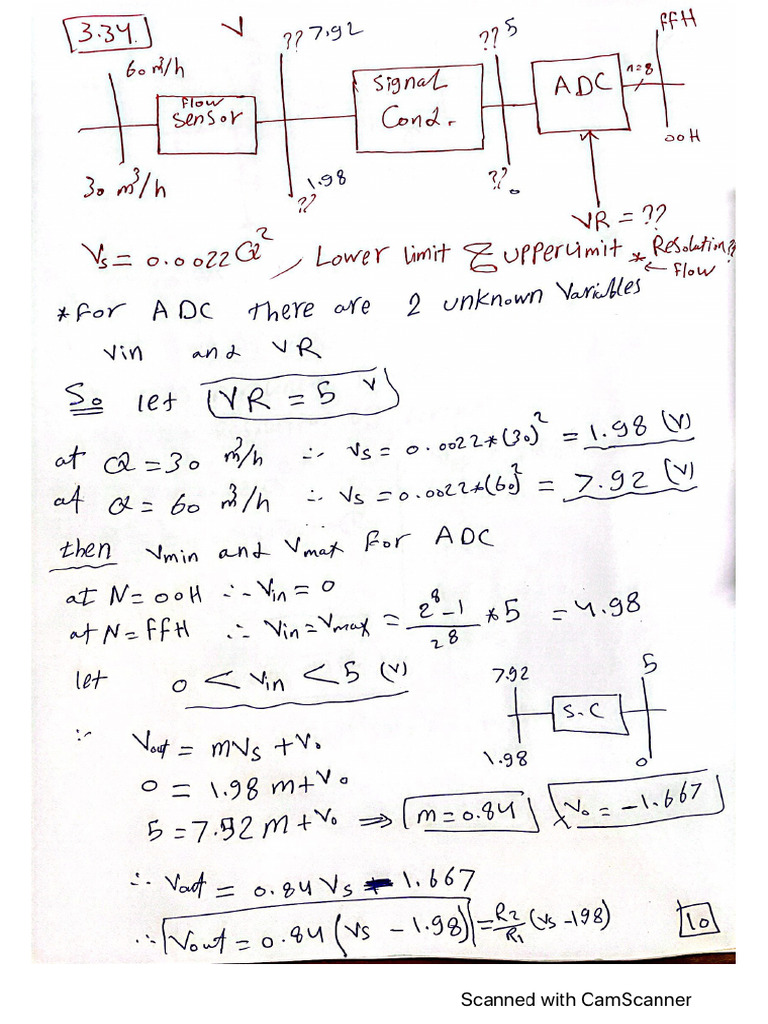 3.34
60 m³/h
flow
Sensor
30 m³/h
?? 7.92
1.98
??
Signal
Cond.
?? 5
?? 0
ADC
n=8
ffH
00H
VR = ??
Vs = 0.0022 Q² , Lower limit & upper limit * Resolution?
← flow
* for ADC there are 2 unknown Variables
Vin and VR
So let VR = 5 V
at Q = 30 m³/h ∴ Vs = 0.0022*(30)² = 1.98 (V)
at Q = 60 m³/h ∴ Vs = 0.0022*(60)² = 7.92 (V)
then Vmin and Vmax for ADC
at N = 00H ∴ Vin = 0
at N = ffH ∴ Vin = Vmax = (2⁸-1)/2⁸ * 5 = 4.98
let 0 < Vin < 5 (V)
7.92
1.98
S.C
5
0
∵ Vout = mVs + V₀
0 = 1.98 m + V₀
5 = 7.92 m + V₀ ⇒ m = 0.84 , V₀ = -1.667
∴ Vout = 0.84 Vs - 1.667
∴ Vout = 0.84 (Vs - 1.98) = R2/R1 (Vs - 198)
10
Scanned with CamScanner